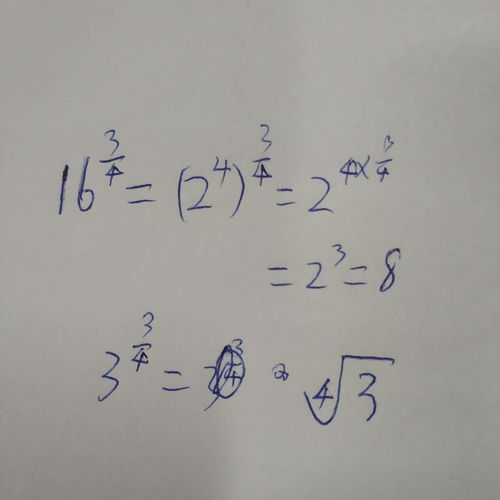 16^{3/4} = (2^4)^{3/4} = 2^{4×3/4}
= 2^3 = 8
3^{3/4} = ∜3